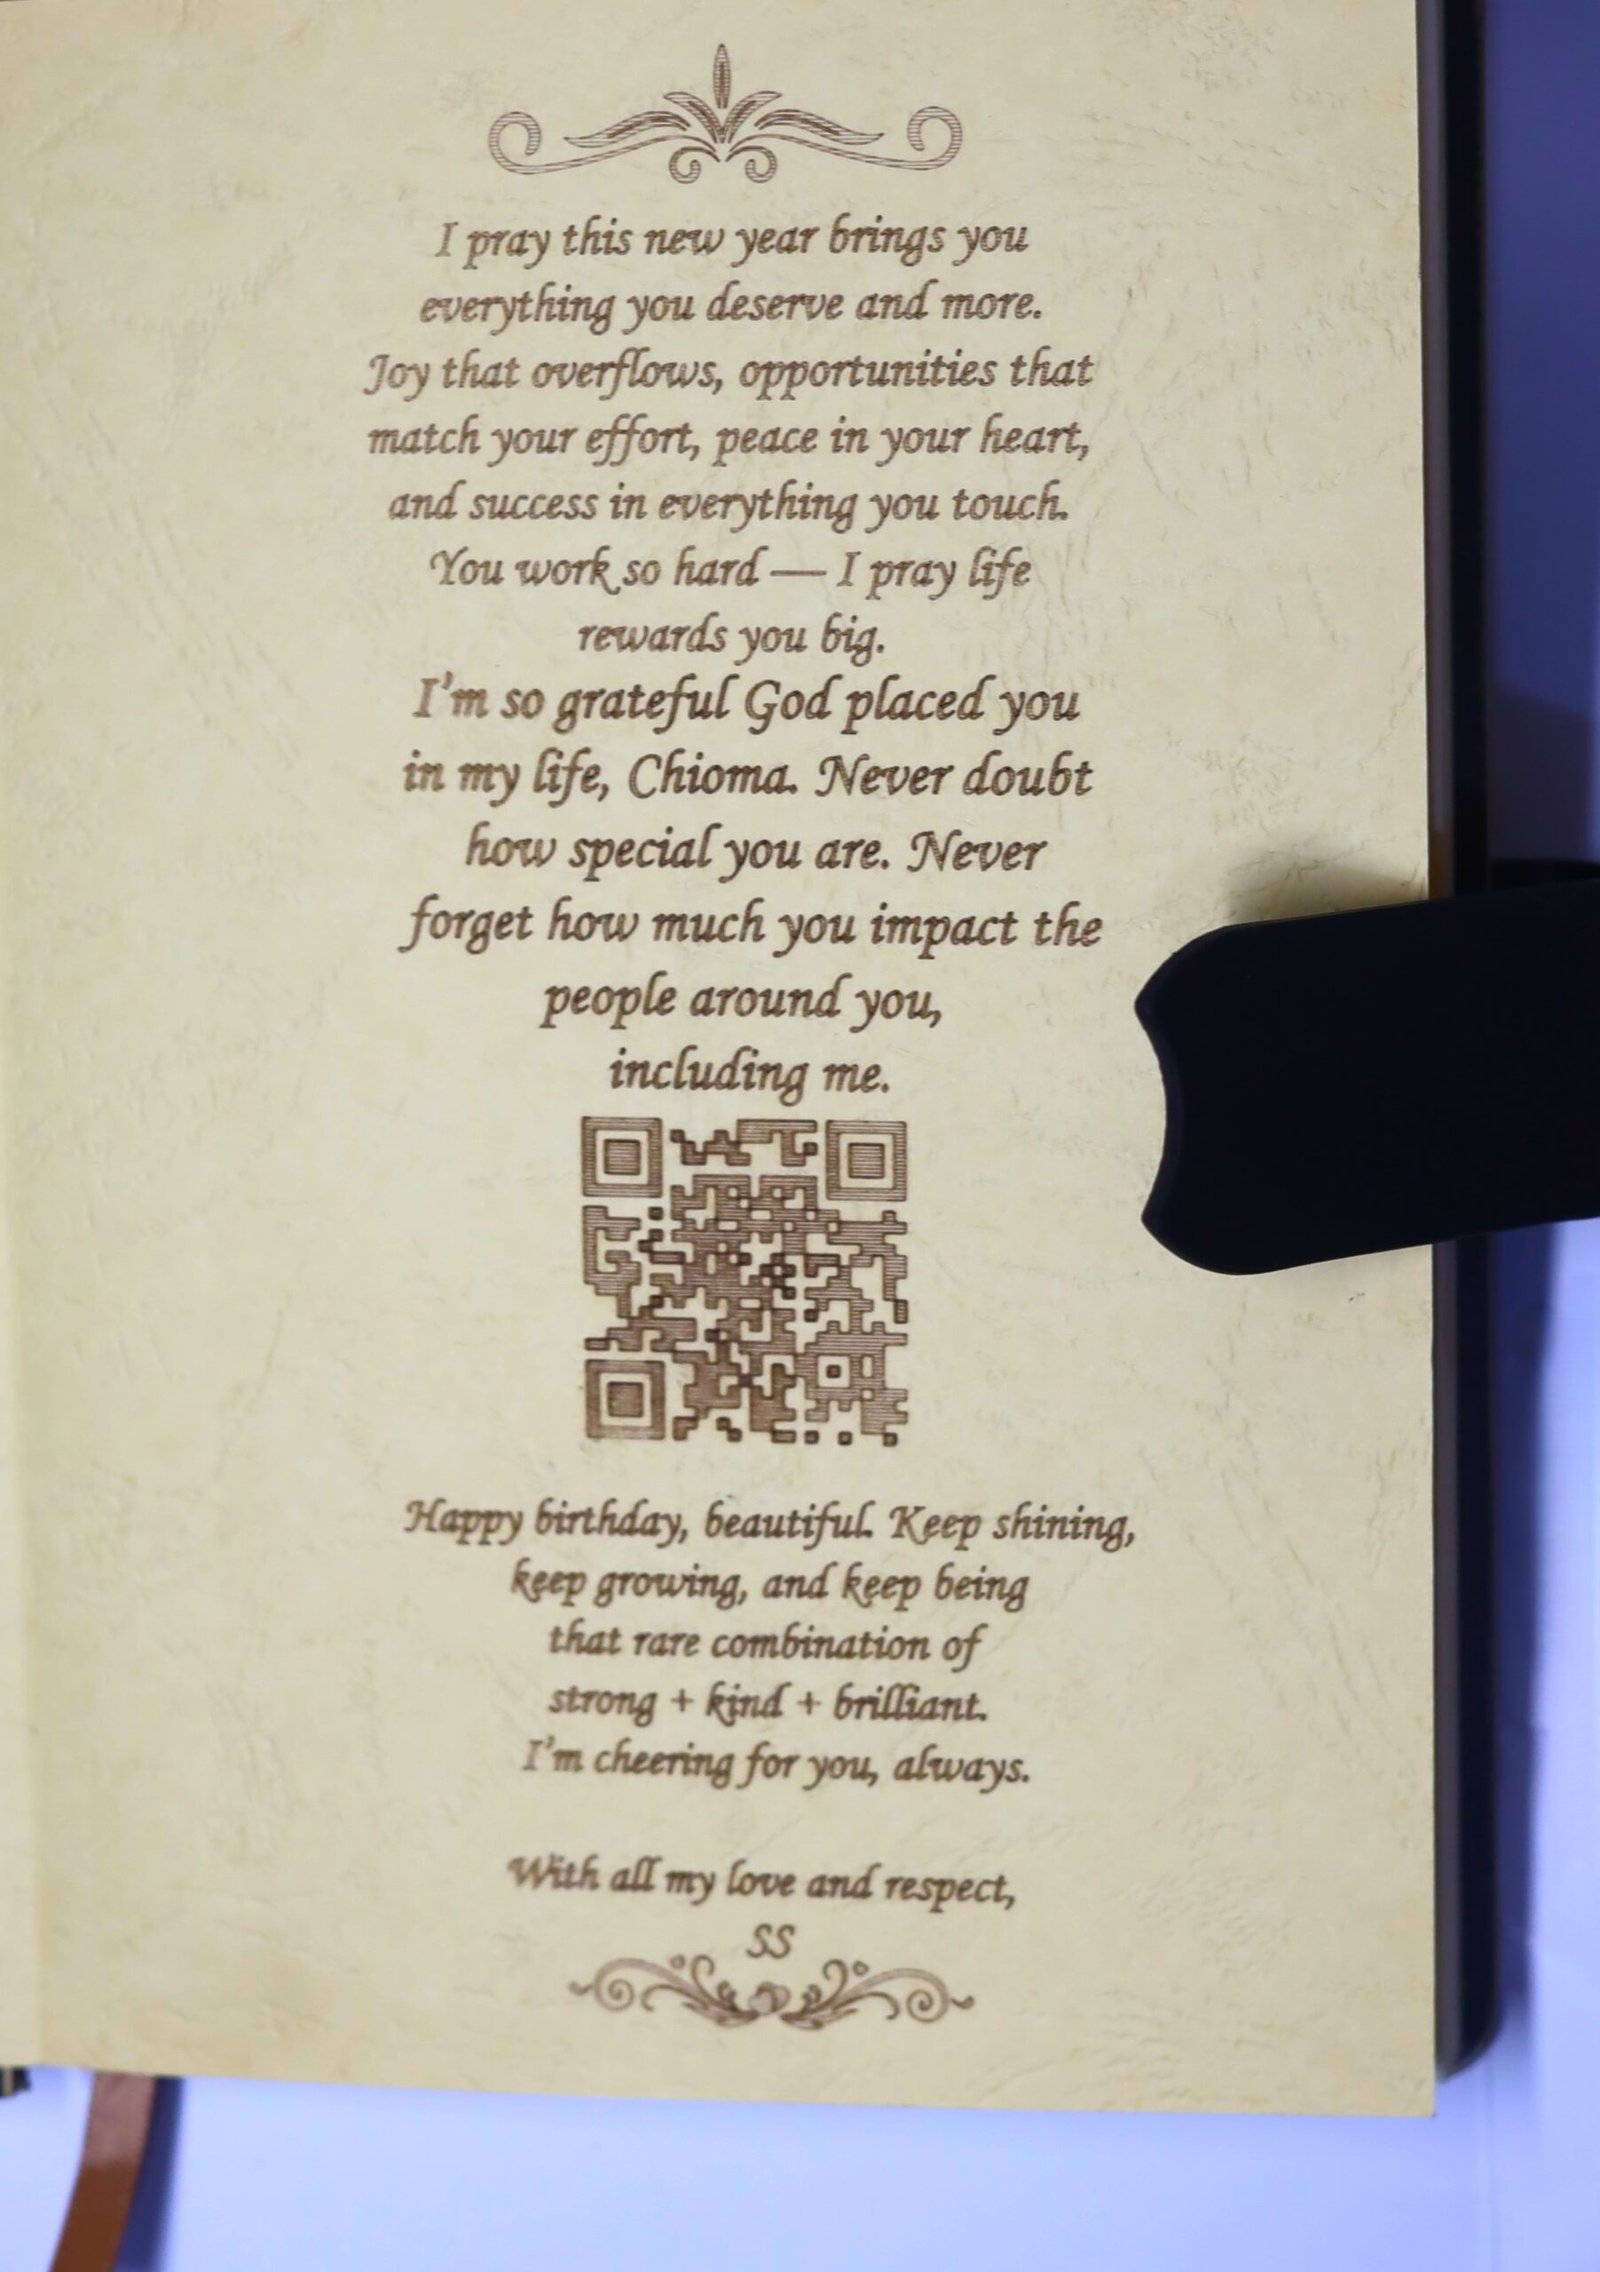 I pray this new year brings you
everything you deserve and more.
Joy that overflows, opportunities that
match your effort, peace in your heart,
and success in everything you touch.
You work so hard — I pray life
rewards you big.
I'm so grateful God placed you
in my life, Chioma. Never doubt
how special you are. Never
forget how much you impact the
people around you,
including me.
Happy birthday, beautiful. Keep shining,
keep growing, and keep being
that rare combination of
strong + kind + brilliant.
I'm cheering for you, always.
With all my love and respect,
SS